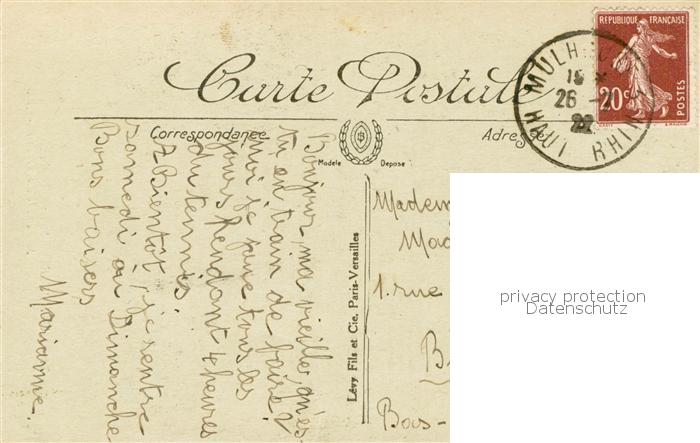 Carte Postale
Correspondance
Adresse
Modèle Déposé
Lévy Fils et Cie, Paris-Versailles
REPUBLIQUE FRANÇAISE
20c
POSTES
MULH
HAUT RHIN
26
Bonjour ma vieille, qu'es
tu en train de faire?
moi je joue tous les
jours pendant 4 heures
du tennis.
A bientôt, je rentre
samedi ou Dimanche
Bons baisers
Marianne.
Madem
Mad
1. rue
B
Bas-
privacy protection
Datenschutz